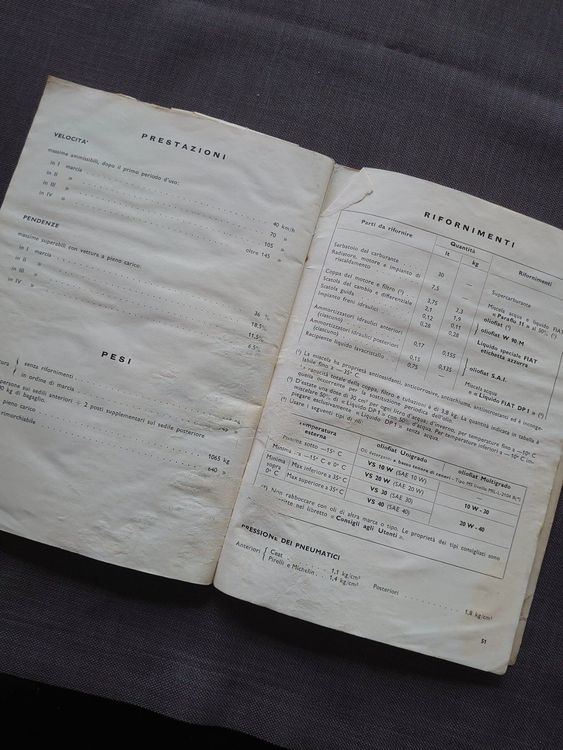 PRESTAZIONI
VELOCITA'
massime ammissibili, dopo il primo periodo d'uso:
in I marcia . . . 40 km/h
in II » . . . 70 »
in III » . . . 105 »
in IV » . . . oltre 145 »
PENDENZE
massime superabili con vettura a pieno carico:
in I marcia . . . 36 %
in II » . . . 18,5%
in III » . . . 11,5%
in IV » . . . 6,5%
PESI
senza rifornimenti
in ordine di marcia
sul sedile anteriori + 2 posti supplementari sul sedile posteriore
kg di bagaglio,
pieno carico . . . 1065 kg
rimorchiabile . . . 640 »
RIFORNIMENTI
Parti da rifornire
Quantità
lt
kg
Rifornimenti
Serbatoio del carburante . . . 30 — Supercarburante
Radiatore, motore e impianto di riscaldamento . . . 7,5 — Miscela acqua e liquido FIAT « Paraflu 11 » al 50%. (¹)
Coppa del motore e filtro (²) 3,75 3,3 oliofiat (³)
Scatola del cambio e differenziale 2,1 1,9 oliofiat W 90/M
Scatola guida . . . 0,12 0,11
Impianto freni idraulici . . . 0,28 0,28 Liquido speciale FIAT etichetta azzurra
Ammortizzatori idraulici anteriori (ciascuno) . . . 0,17 0,155
Ammortizzatori idraulici posteriori (ciascuno) . . . 0,15 0,135
oliofiat S.A.I.
Recipiente liquido lavacristallo . . . 0,75 Miscela acqua e Liquido FIAT DP I »
(¹) La miscela ha proprietà antiossidanti, anticorrosive, antischiuma, antincrostanti ed è inconge-
labile fino a — 35° C.
(²) La capacità totale della coppa, filtro e tubazioni è di 3,8 kg. La quantità indicata in tabella è
quella occorrente per la sostituzione periodica dell'olio.
senza acqua.
Usare i seguenti tipi di oli:
Temperatura esterna
oliofiat Unigrado
oliofiat Multigrado
Minima sotto —15° C
VS 10 W (SAE 10 W)
Minima tra —15° C e 0° C
VS 20 W (SAE 20 W)
10 W - 30
Minima sopra 0° C
Max inferiore a 35° C
VS 30 (SAE 30)
Max superiore a 35° C
VS 40 (SAE 40)
20 W - 40
(*) Non rabboccare con oli di altra marca o tipo. Le proprietà dei tipi consigliati sono
nel libretto « Consigli agli Utenti ».
PRESSIONE DEI PNEUMATICI
Anteriori
Ceat . . . 1,1 kg/cm²
Pirelli e Michelin . . 1,4 kg/cm²
Posteriori . . . 1,8 kg/cm²
51